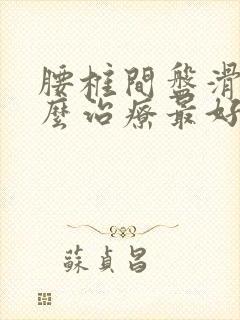 腰椎間盤滑
麼治療最好
蘇貞昌